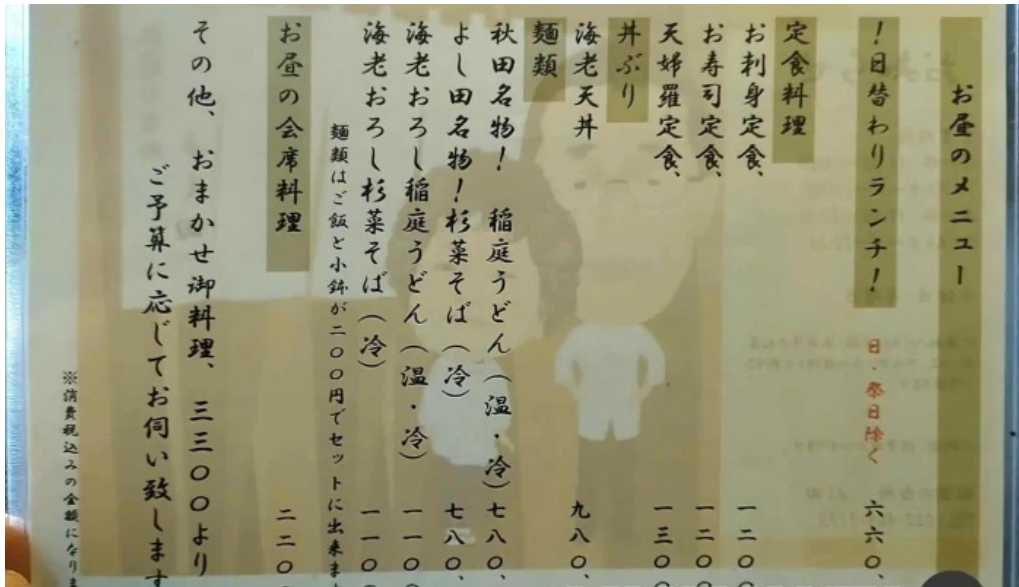 お昼のメニュー
！日替わりランチ！ 日・祭日除く 六六〇、
定食料理
お刺身定食、 一二〇〇
お寿司定食、 一二〇〇
天婦羅定食、 一三〇〇
丼ぶり
海老天丼 九八〇、
麺類
秋田名物！ 稲庭うどん（温・冷） 七八〇、
よし田名物！杉菜そば（冷） 七八〇、
海老おろし稲庭うどん（温・冷） 一一〇〇
海老おろし杉菜そば（冷） 一一〇〇
麺類はご飯と小鉢が二〇〇円でセットに出来ま
お昼の会席料理 二二〇
その他、おまかせ御料理、三三〇〇より
ご予算に応じてお伺い致します
※消費税込みの金額になりま